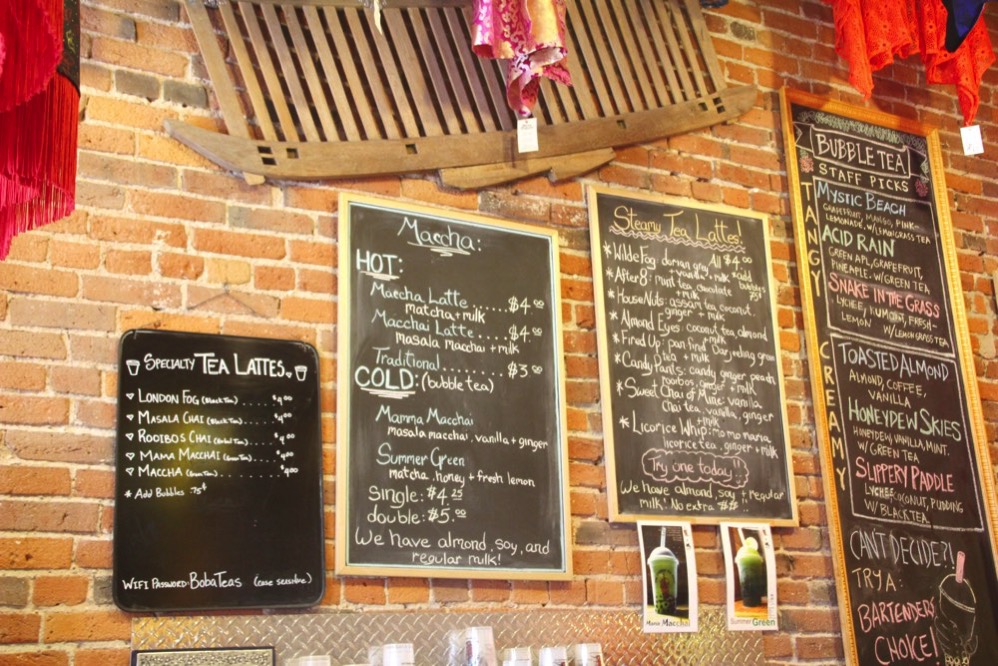 SPECIALTY TEA LATTES
LONDON FOG (BLACK TEA) .... $4.00
MASALA CHAI (BLACK TEA) .... $4.00
ROOIBOS CHAI (HERBAL TEA) .... $4.00
MAMA MACCHAI (GREEN TEA) .... $4.00
MACCHA (GREEN TEA) .... $4.00
* ADD BUBBLES .75¢
WIFI PASSWORD: BOBATEAS (CASE SENSITIVE)
Maccha:
HOT:
Maccha Latte ..... $4.00
matcha + milk
Macchai Latte ..... $4.00
masala macchai + milk
Traditional ..... $3.00
COLD: (bubble tea)
Mamma Macchai
masala macchai, vanilla + ginger
Summer Green
matcha, honey + fresh lemon
single: $4.25
double: $5.00
We have almond, soy, and
regular milk!
Steamy Tea Lattes!
All $4.00
* Wilde Fog: dorian grey,
+ vanilla + milk
add bubbles 75¢
* After 8: mint tea, chocolate
+ milk
* House Nuts: assam tea, coconut,
ginger + milk
* Almond Eyes: coconut tea, almond
+ milk
* Fired Up: pan fired Darjeeling green
tea + milk
* Candy Pants: candy ginger peach
rooibos, ginger + milk
* Sweet Chai of Mine: vanilla
chai tea, vanilla, ginger
+ milk
* Licorice Whip: mo mo maria
licorice tea, ginger + milk
Try one today!!
We have almond, soy + regular
milk! No extra $$!!
Mama Macchai
Summer Green
BUBBLE TEA
STAFF PICKS
TANGY
MYSTIC BEACH
GRAPEFRUIT, MANGO, PINK-
LEMONADE, W/ LEMONGRASS TEA
ACID RAIN
GREEN APL, GRAPEFRUIT,
PINEAPPLE. W/ GREEN TEA
SNAKE IN THE GRASS
LYCHEE, KUMQUAT, FRESH-
LEMON W/ LEMONGRASS TEA
CREAMY
TOASTED ALMOND
ALMOND, COFFEE,
VANILLA
HONEYDEW SKIES
HONEYDEW, VANILLA, MINT.
W/ GREEN TEA
SLIPPERY PADDLE
LYCHEE, COCONUT, PUDDING
W/ BLACK TEA.
CAN'T DECIDE?!
TRY A:
BARTENDERS
CHOICE!